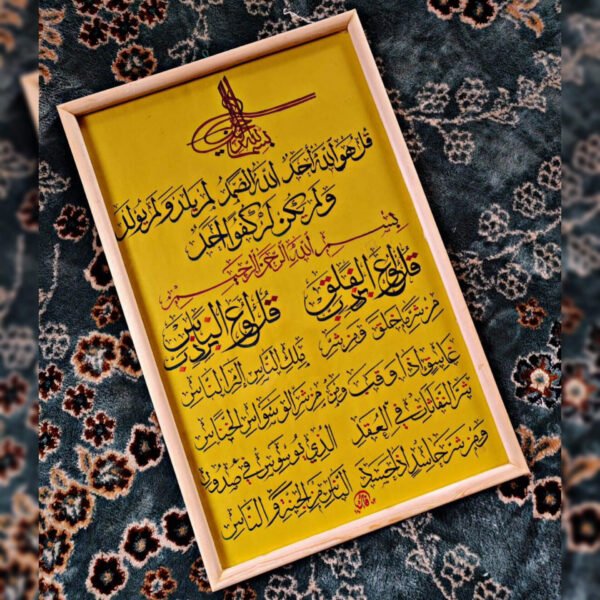 بسم الله الرحمن الرحيم
قُلْ هُوَ اللهُ أَحَدٌ اللهُ الصَّمَدُ لَمْ يَلِدْ وَلَمْ يُولَدْ
وَلَمْ يَكُنْ لَهُ كُفُوًا أَحَدٌ
بِسْمِ اللهِ الرَّحْمٰنِ الرَّحِيمِ
قُلْ أَعُوذُ بِرَبِّ الْفَلَقِ
مِنْ شَرِّ مَا خَلَقَ وَمِنْ شَرِّ
غَاسِقٍ إِذَا وَقَبَ وَمِنْ
شَرِّ النَّفَّاثَاتِ فِي الْعُقَدِ
وَمِنْ شَرِّ حَاسِدٍ إِذَا حَسَدَ
قُلْ أَعُوذُ بِرَبِّ النَّاسِ
مَلِكِ النَّاسِ إِلٰهِ النَّاسِ
مِنْ شَرِّ الْوَسْوَاسِ الْخَنَّاسِ
الَّذِي يُوَسْوِسُ فِي صُدُورِ
النَّاسِ مِنَ الْجِنَّةِ وَ النَّاسِ